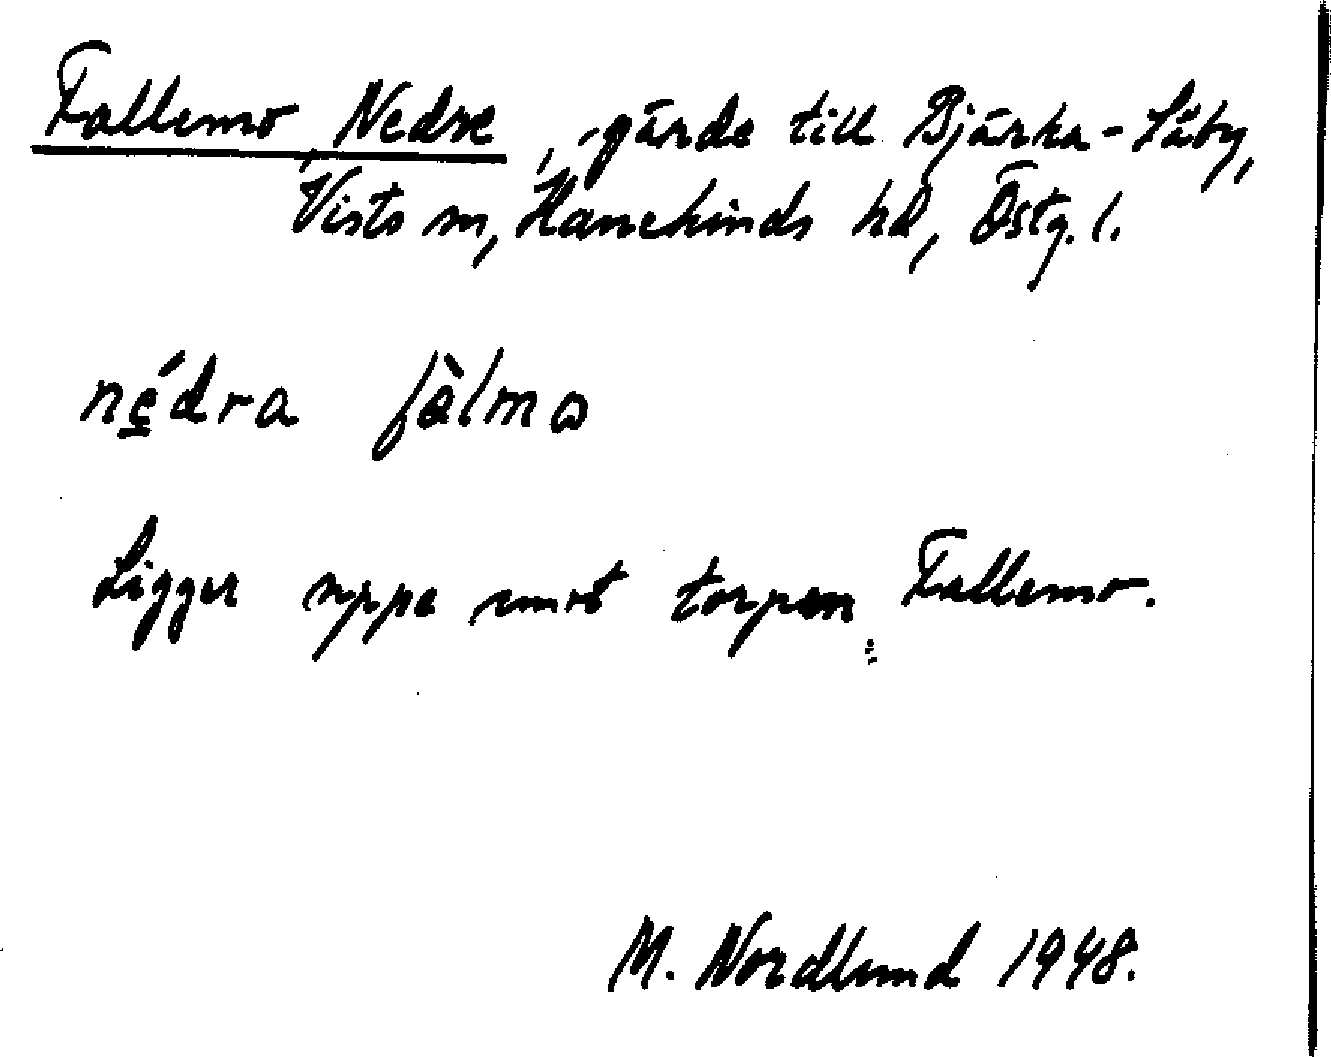 Fallemo, Nedre, gärde till Bjärka-Säby,
Vists sn, Hanekinds hd, Östg. l.
nẹ́dra fàlmω
Ligger uppe emot torpen Fallemo.
M. Nordlund 1948.